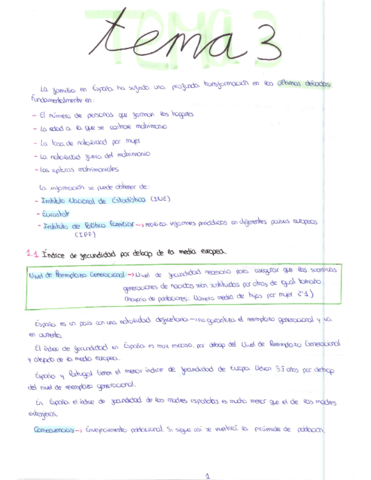 tema 3
La familia en España ha sufrido una profunda transformación en las últimas décadas:
Fundamentalmente en:
- El número de personas que forman los hogares
- La edad a la que se contrae matrimonio
- La tasa de natalidad por mujer
- La natalidad fuera del matrimonio
- Las rupturas matrimoniales
La información se puede obtener de:
- Instituto Nacional de Estadística (INE)
- Eurostat
- Instituto de Política Familiar → realiza informes periódicos en diferentes países europeos
(IPF)
1.1 Índice de fecundidad por debajo de la media europea.
Nivel de Reemplazo Generacional → Nivel de fecundidad necesario para asegurar que las sucesivas
generaciones de nacidos sean sustituidas por otras de igual tamaño
Número media de hijos por mujer
España es un país con una natalidad → no garantiza el reemplazo generacional y va
en aumento.
El índice de fecundidad en España es muy escaso por debajo del Nivel de Reemplazo Generacional
y alejado de la media europea.
España y Portugal tienen el menor índice de fecundidad de Europa. Llevan años por debajo
del nivel de reemplazo generacional.
En España el índice de fecundidad de las madres españolas es mucho menor que el de las madres
extranjeras.
Consecuencias → Envejecimiento poblacional. Si sigue así se invertirá la pirámide de población.
1